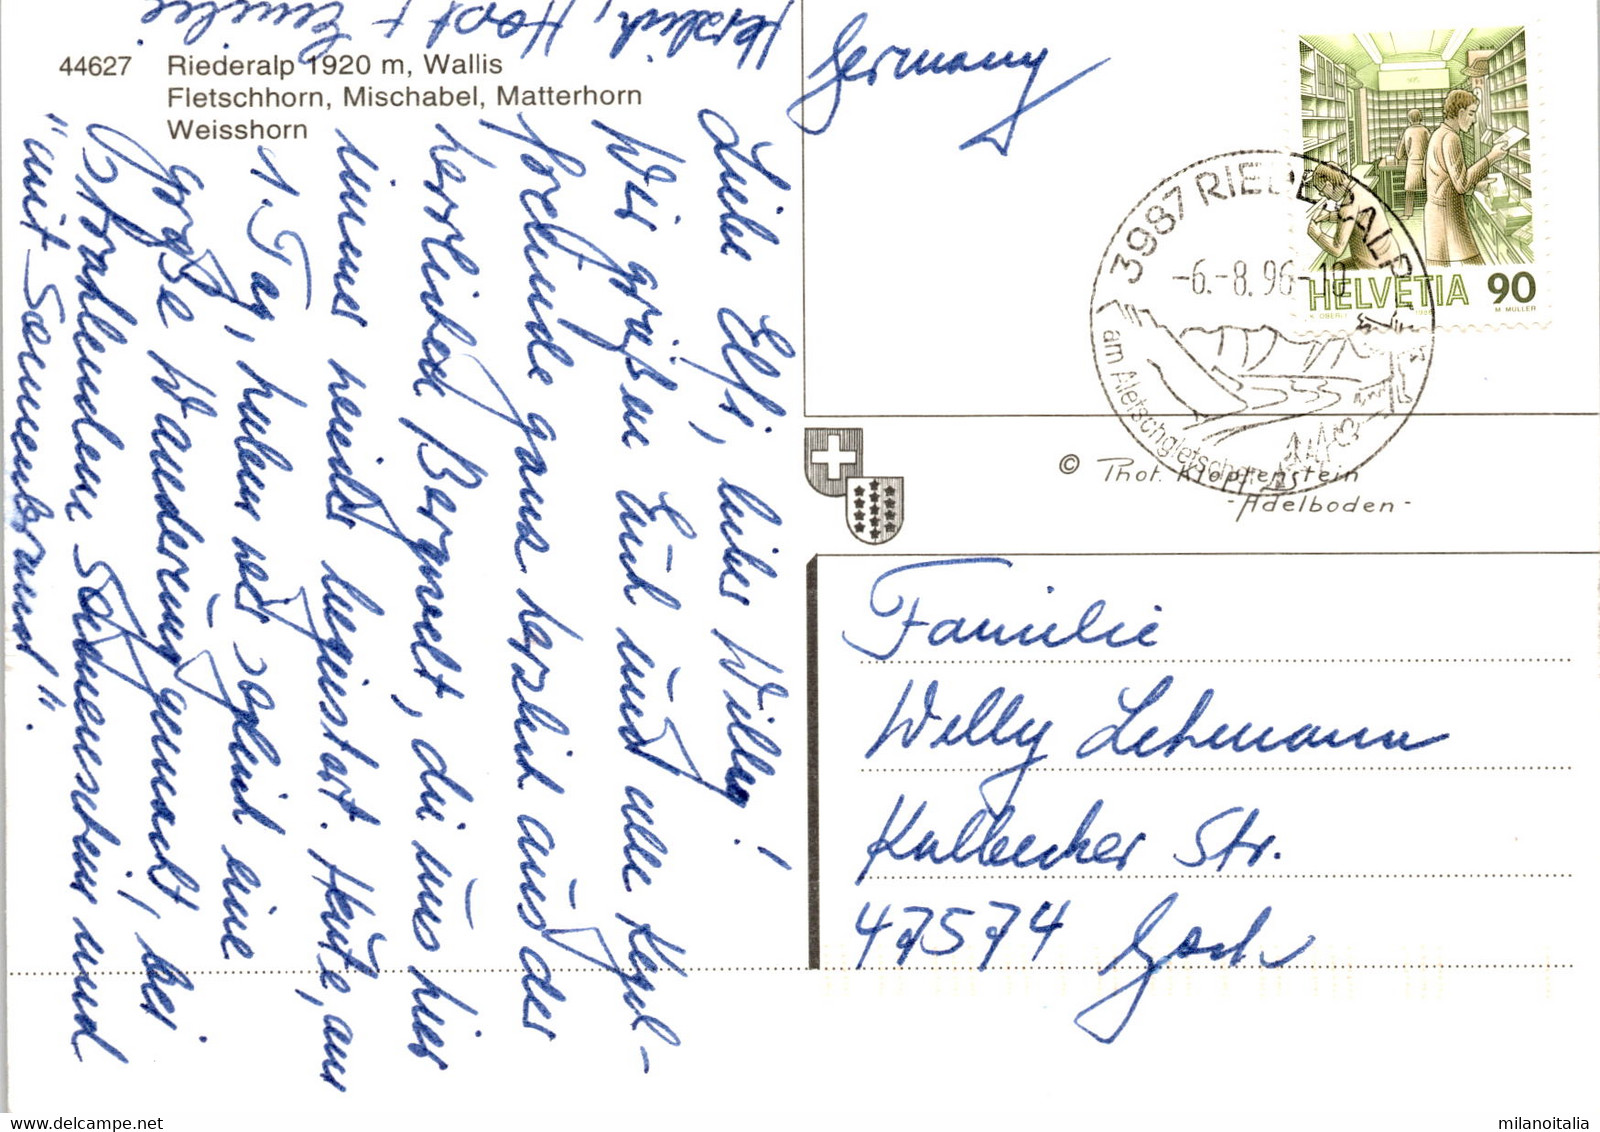 44627 Riederalp 1920 m, Wallis
Fletschhorn, Mischabel, Matterhorn
Weisshorn
Liebe Elfi, lieber Willy!
Wir grüßen Euch und alle Kegel-
freunde ganz herzlich aus der
herrlichen Bergwelt, die uns hier
immer wieder begeistert. Heute, am
1. Tag, haben wir sogleich eine
große Wanderung gemacht, bei
strahlendem Sonnenschein und
"mit Sonnenbrand".
Herzlich, Horst +
Germany
HELVETIA 90
M. MÜLLER
3987 RIEDERALP
-6.-8.96-10
am Aletschgletscher
© Phot. Klopfenstein
-Adelboden-
Familie
Willy Lehmann
Kalbecker Str.
47574 Goch
milanoitalia